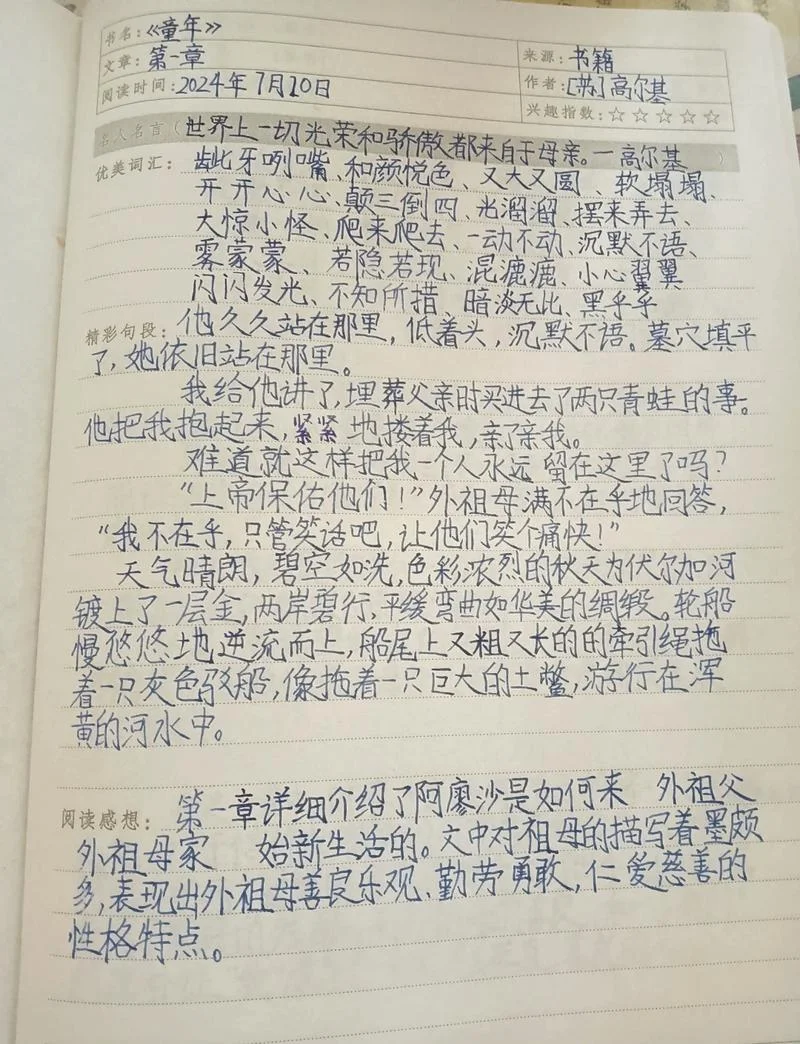 书名：《童年》
文章：第一章
来源：书籍
阅读时间：2024年7月10日
作者：[苏]高尔基
兴趣指数：☆☆☆☆☆
名人名言（世界上一切光荣和骄傲都来自于母亲。一高尔基）
优美词汇：龇牙咧嘴、和颜悦色、又大又圆、软塌塌、
开开心心、颠三倒四、光溜溜、摆来弄去、
大惊小怪、爬来爬去、一动不动、沉默不语、
雾蒙蒙、若隐若现、混漉漉、小心翼翼
闪闪发光、不知所措、暗淡无比、黑乎乎
精彩句段：他久久站在那里，低着头，沉默不语。墓穴填平
了，她依旧站在那里。
我给他讲了，埋葬父亲时买进去了两只青蛙的事。
他把我抱起来，紧紧地搂着我，亲了亲我。
难道就这样把我一个人永远留在这里了吗？
“上帝保佑他们！”外祖母满不在乎地回答，
“我不在乎，只管笑话吧，让他们笑个痛快！”
天气晴朗，碧空如洗，色彩浓烈的秋天为伏尔加河
镀上了一层金，两岸碧行，平缓弯曲如华美的绸缎。轮船
慢悠悠地逆流而上，船尾上又粗又长的的牵引绳拖
着一只灰色驳船，像拖着一只巨大的土鳖，游行在浑
黄的河水中。
阅读感想：第一章详细介绍了阿廖沙是如何来 外祖父
外祖母家 始新生活的。文中对祖母的描写着墨颇
多，表现出外祖母善良乐观、勤劳勇敢，仁爱慈善的
性格特点。